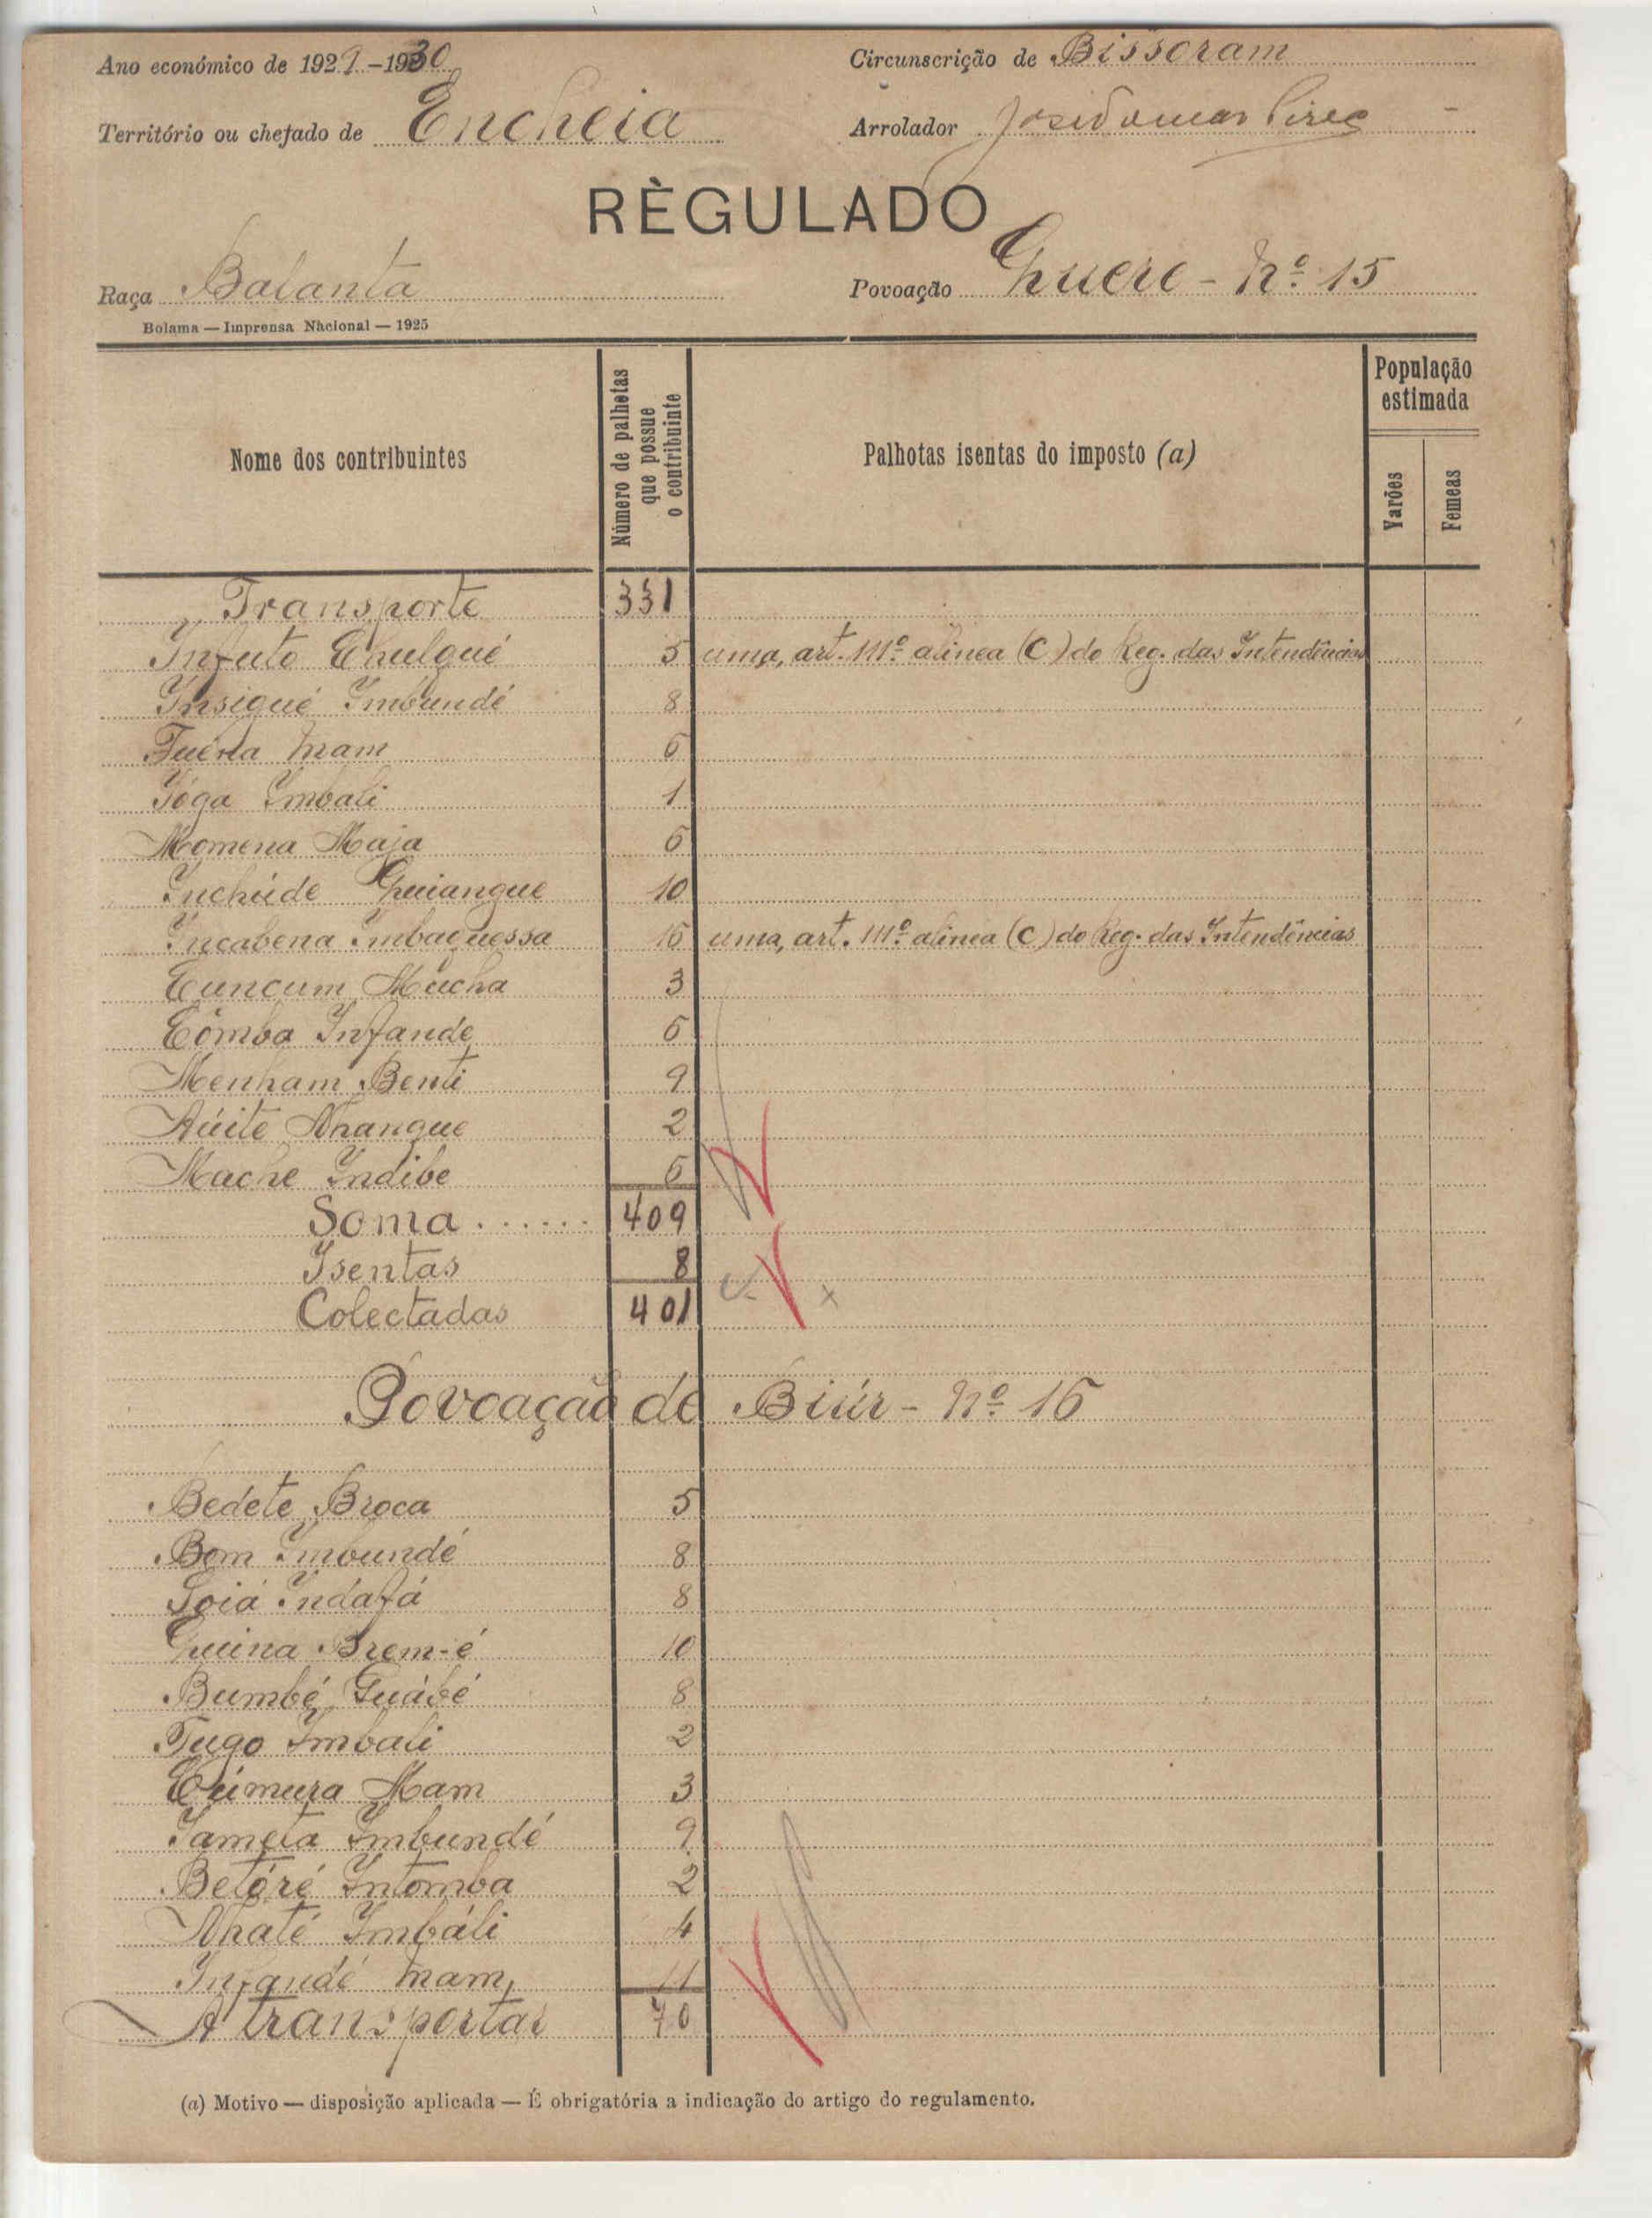 Ano económico de 1929-1930
Circunscrição de Bissoram
Território ou chefado de Encheia
Arrolador
RÈGULADO
Raça Balanta
Povoação Ghuere - Nº 15
Bolama — Imprensa Nacional — 1925
Nome dos contribuintes
Número de palhotas que possue o contribuinte
Palhotas isentas do imposto (a)
População estimada
Varões
Femeas
Transporte 331
Infuto 5 uma, art. 111º alinea (C) do Reg. das Intendências
Insigué Imbundé 8
Mam 6
Ióga Imbali 1
Momena Maja 6
Inchúde Ghuiangue 10
Incabena Imbaquessa 16 uma, art. 111º alinea (C) do Reg. das Intendências
Cuncum Mucha 3
Cômba Infande 6
Menham Benti 9
Aúite Nhangue 2
Mache Indibe 6
Soma ...... 409
Isentas 8
Colectadas 401
Povoação de Biúr - Nº 16
Bedete Broca 5
Bom Imbundé 8
Soiá Indafá 8
Guina Brem-é 10
Bumbé Guábé 8
Tugo Imbali 2
Mam 3
Iameta Imbundé 9
Betóré Intomba 2
Nhaté Imbáli 4
Infandé Mam 11
A transportar 70
(a) Motivo — disposição aplicada — É obrigatória a indicação do artigo do regulamento.